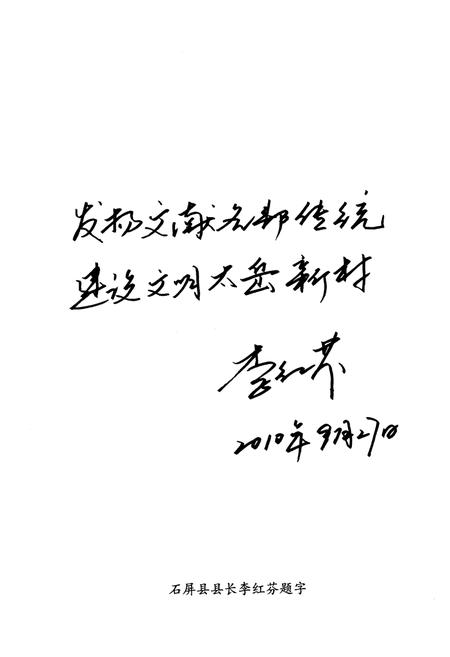 发扬文献名邦传统
建设文明太岳新村
李红芬
2010年9月27日
石屏县县长李红芬题字